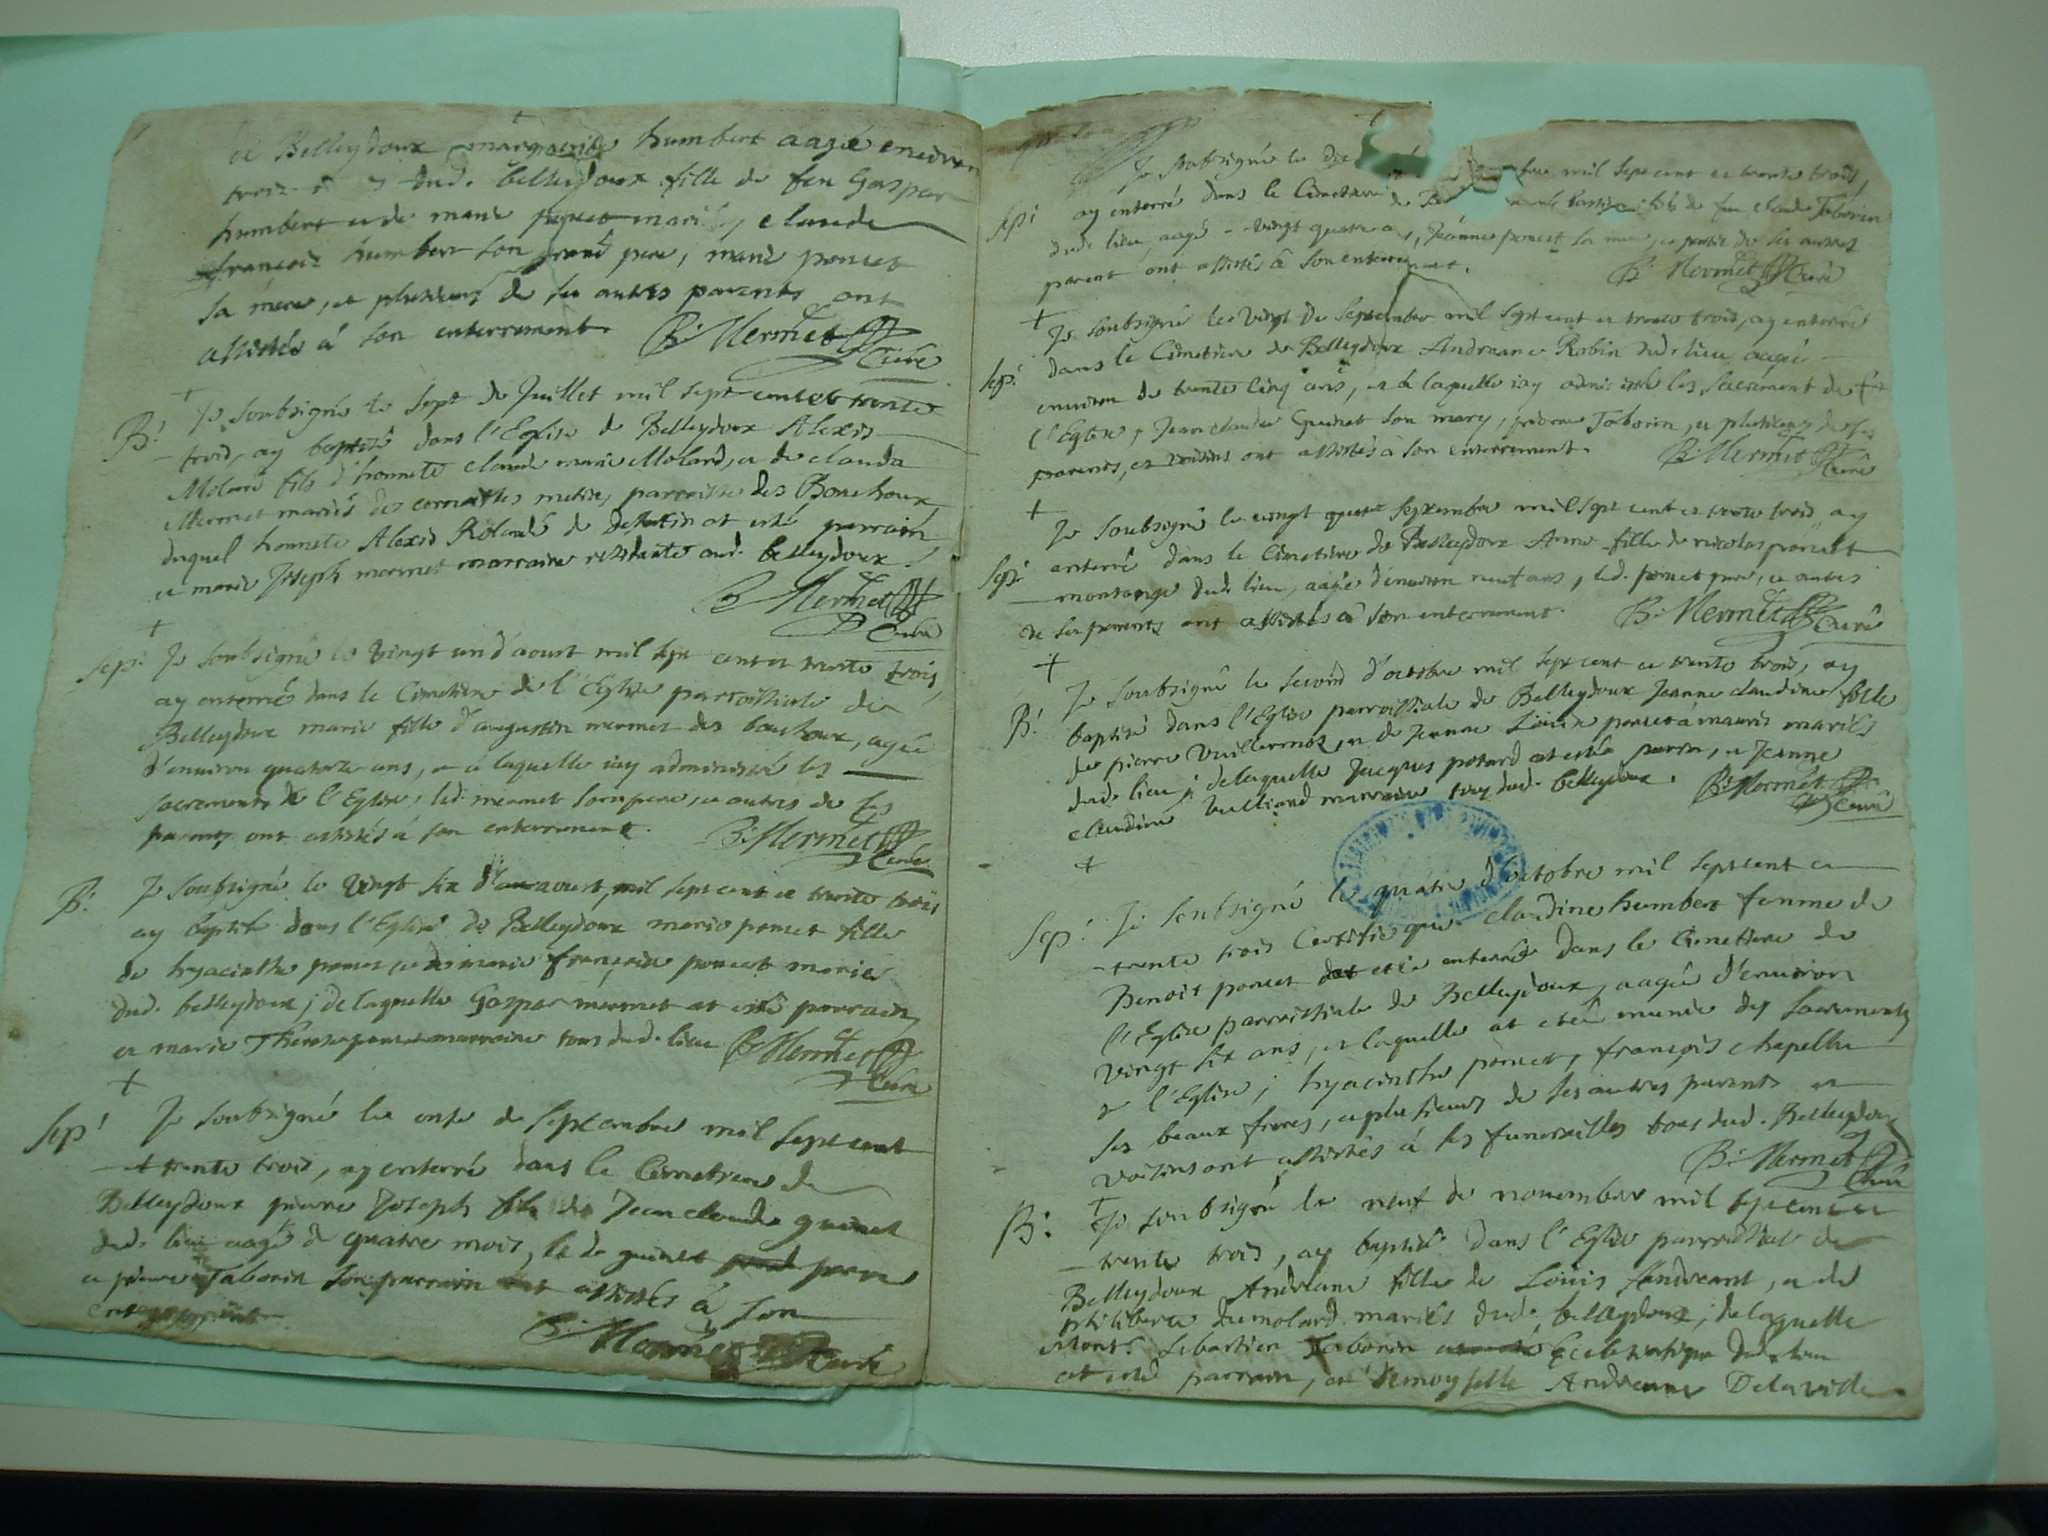 de Belleydoux, marguerite humbert aagée environ
trois dud. belleydoux fille de feu Gaspar
humbert et de marie poncet mariés, claude
françois humbert son grand pere, marie poncet
sa mere, et plusieurs de ses autres parents ont
assistés à son enterrement. B: Mermet Curé
+
B: Je soubsigné le sept de Juillet mil sept cent et trente
trois, ay baptisé dans l'Eglise de Belleydoux Alexis
Molard fils d'honnete claude marie Molard, et de clauda
Mermet mariés des parroisse des Bouchoux
duquel honnete Alexis Rolandé de at esté parrain,
et marie Joseph mermet marraine residante aud. belleydoux.
B Mermet
Curé
+
Sep: Je soubsigné le vingt un d'aoust mil sept cent et trente trois
ay enterrés dans le Cimetiere de l'Eglise parroissiale de
Belleydoux marie fille d'augustin mermet des bouchoux, agée
d'environ quatorze ans, et à laquelle iay administré les
sacrements de l'Eglise, led. mermet son pere, et autres de ses
parents ont assistés à son enterrement. B: Mermet
Curé
B: Je soubsigné le vingt six d'aoust, mil sept cent et trente trois
ay baptisé dans l'Eglise de Belleydoux marie poncet fille
de hyacinthe poncet et de marie françoise poncet mariés
dud. belleydoux; de laquelle Gaspar mermet at esté parrain,
et marie Therese poncet marraine tous dud. lieu B Mermet
+ Curé
Sep: Je soubsigné le onse de septembre mil sept cent
et trente trois, ay enterré dans le Cimetiere de
Belleydoux pierre Joseph fils de Jean claude guinet
dud. lieu aagé de quatre mois, le d. guinet pere
et pierre Taborin son parrain ont assistés à son
enterrement.
B: Mermet Curé
Je soubsigné le mil sept cent et trente trois,
Sep: ay enterré dans le Cimetiere de fils de feu claude Taborin
dud. lieu aagé vingt quatre ans, Jeanne poncet sa mere, et partie de ses autres
parent ont assistés à son enterrement. B: Mermet Curé
+
Je soubsigné le vingt de septembre mil sept cent et trente trois, ay enterré
Sep: dans le Cimetiere de Belleydoux Andreane Robin dud. lieu aagée
environ de trente cinq ans, et à laquelle iay administré les sacrement de
l'Eglise, Jean claude Guinet son mary, pierre Taborin, et plusieurs de ses
parents, et voisins ont assistés à son enterrement. B: Mermet
Curé
+
Je soubsigné le vingt quatre septembre mil sept cent et trente trois ay
Sep: enterré dans le Cimetiere de Belleydoux Anne fille de nicolas poncet
dud. lieu, aagée d'environ neuf ans, led. poncet pere, et autres
de ses parents ont assistés à son enterrement. B: Mermet Curé
+
Je soubsigné le second d'octobre mil sept cent et trente trois, ay
B: baptisé dans l'Eglise parroissiale de Belleydoux Jeanne claudine fille
de pierre Vuillermoz, et de Jeanne Louise poncet mariés
dud. lieu; de laquelle Jacques potard at esté parrin, et Jeanne
claudine marraine tous dud. belleydoux. B: Mermet
Curé
+
Sep: Je soubsigné le quatre d'octobre mil sept cent et
trente trois Certifie que claudine humbert femme de
Benoit poncet at esté enterrée dans le Cimetiere de
l'Eglise parroissiale de Belleydoux, aagée d'environ
vingt six ans, et laquelle at esté munie des sacrements
de l'Eglise; hyacinthe poncet, françois chapellu
ses beaux freres, et plusieurs de ses autres parents et
voisins ont assistés à ses funerailles tous dud. Belleydoux
B: Mermet
Curé
+
B: Je soubsigné le neuf de novembre mil sept cent et
trente trois, ay baptisé dans l'Eglise parroissiale de
Belleydoux Andreane fille de Louis Andreant, et de
philiberte dumolard mariés dud. belleydoux; de laquelle
Sebastien Taborin Ecclesiastique dud. lieu
at esté parrain, et demoyselle Andreane Delaville